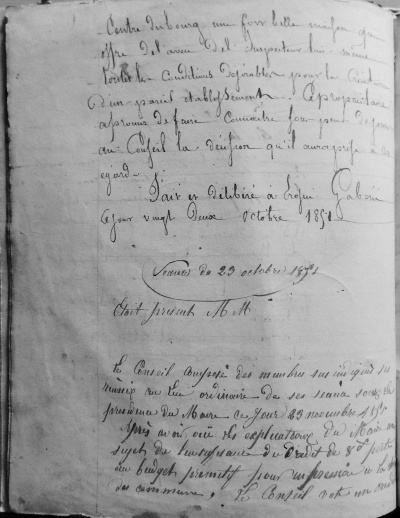 Centre du bourg une fort belle maison qui
offre de l'aveu de l'Inspecteur lui même
toutes les Conditions desirables pour la Création
d'un pareil etablissement. Ce proprietaire
a promis de faire Connaitre sous peu de jours
au Conseil la décision qu'il aura prise a cet
egard.
Fait et délibéré à
ce jour vingt deux octobre 1851
Seance du 23 octobre 1851
Etait présent M M
Le Conseil Composé des membres sus indiqués
reunis en lieu ordinaire de ses séances sous la
presidence du Maire ce jour 23 novembre 1851
Après avoir oui les explications du Maire au
sujet de l'insuffisance du Crédit de porté
au budget primitif pour impression
des communes, Le Conseil vote un